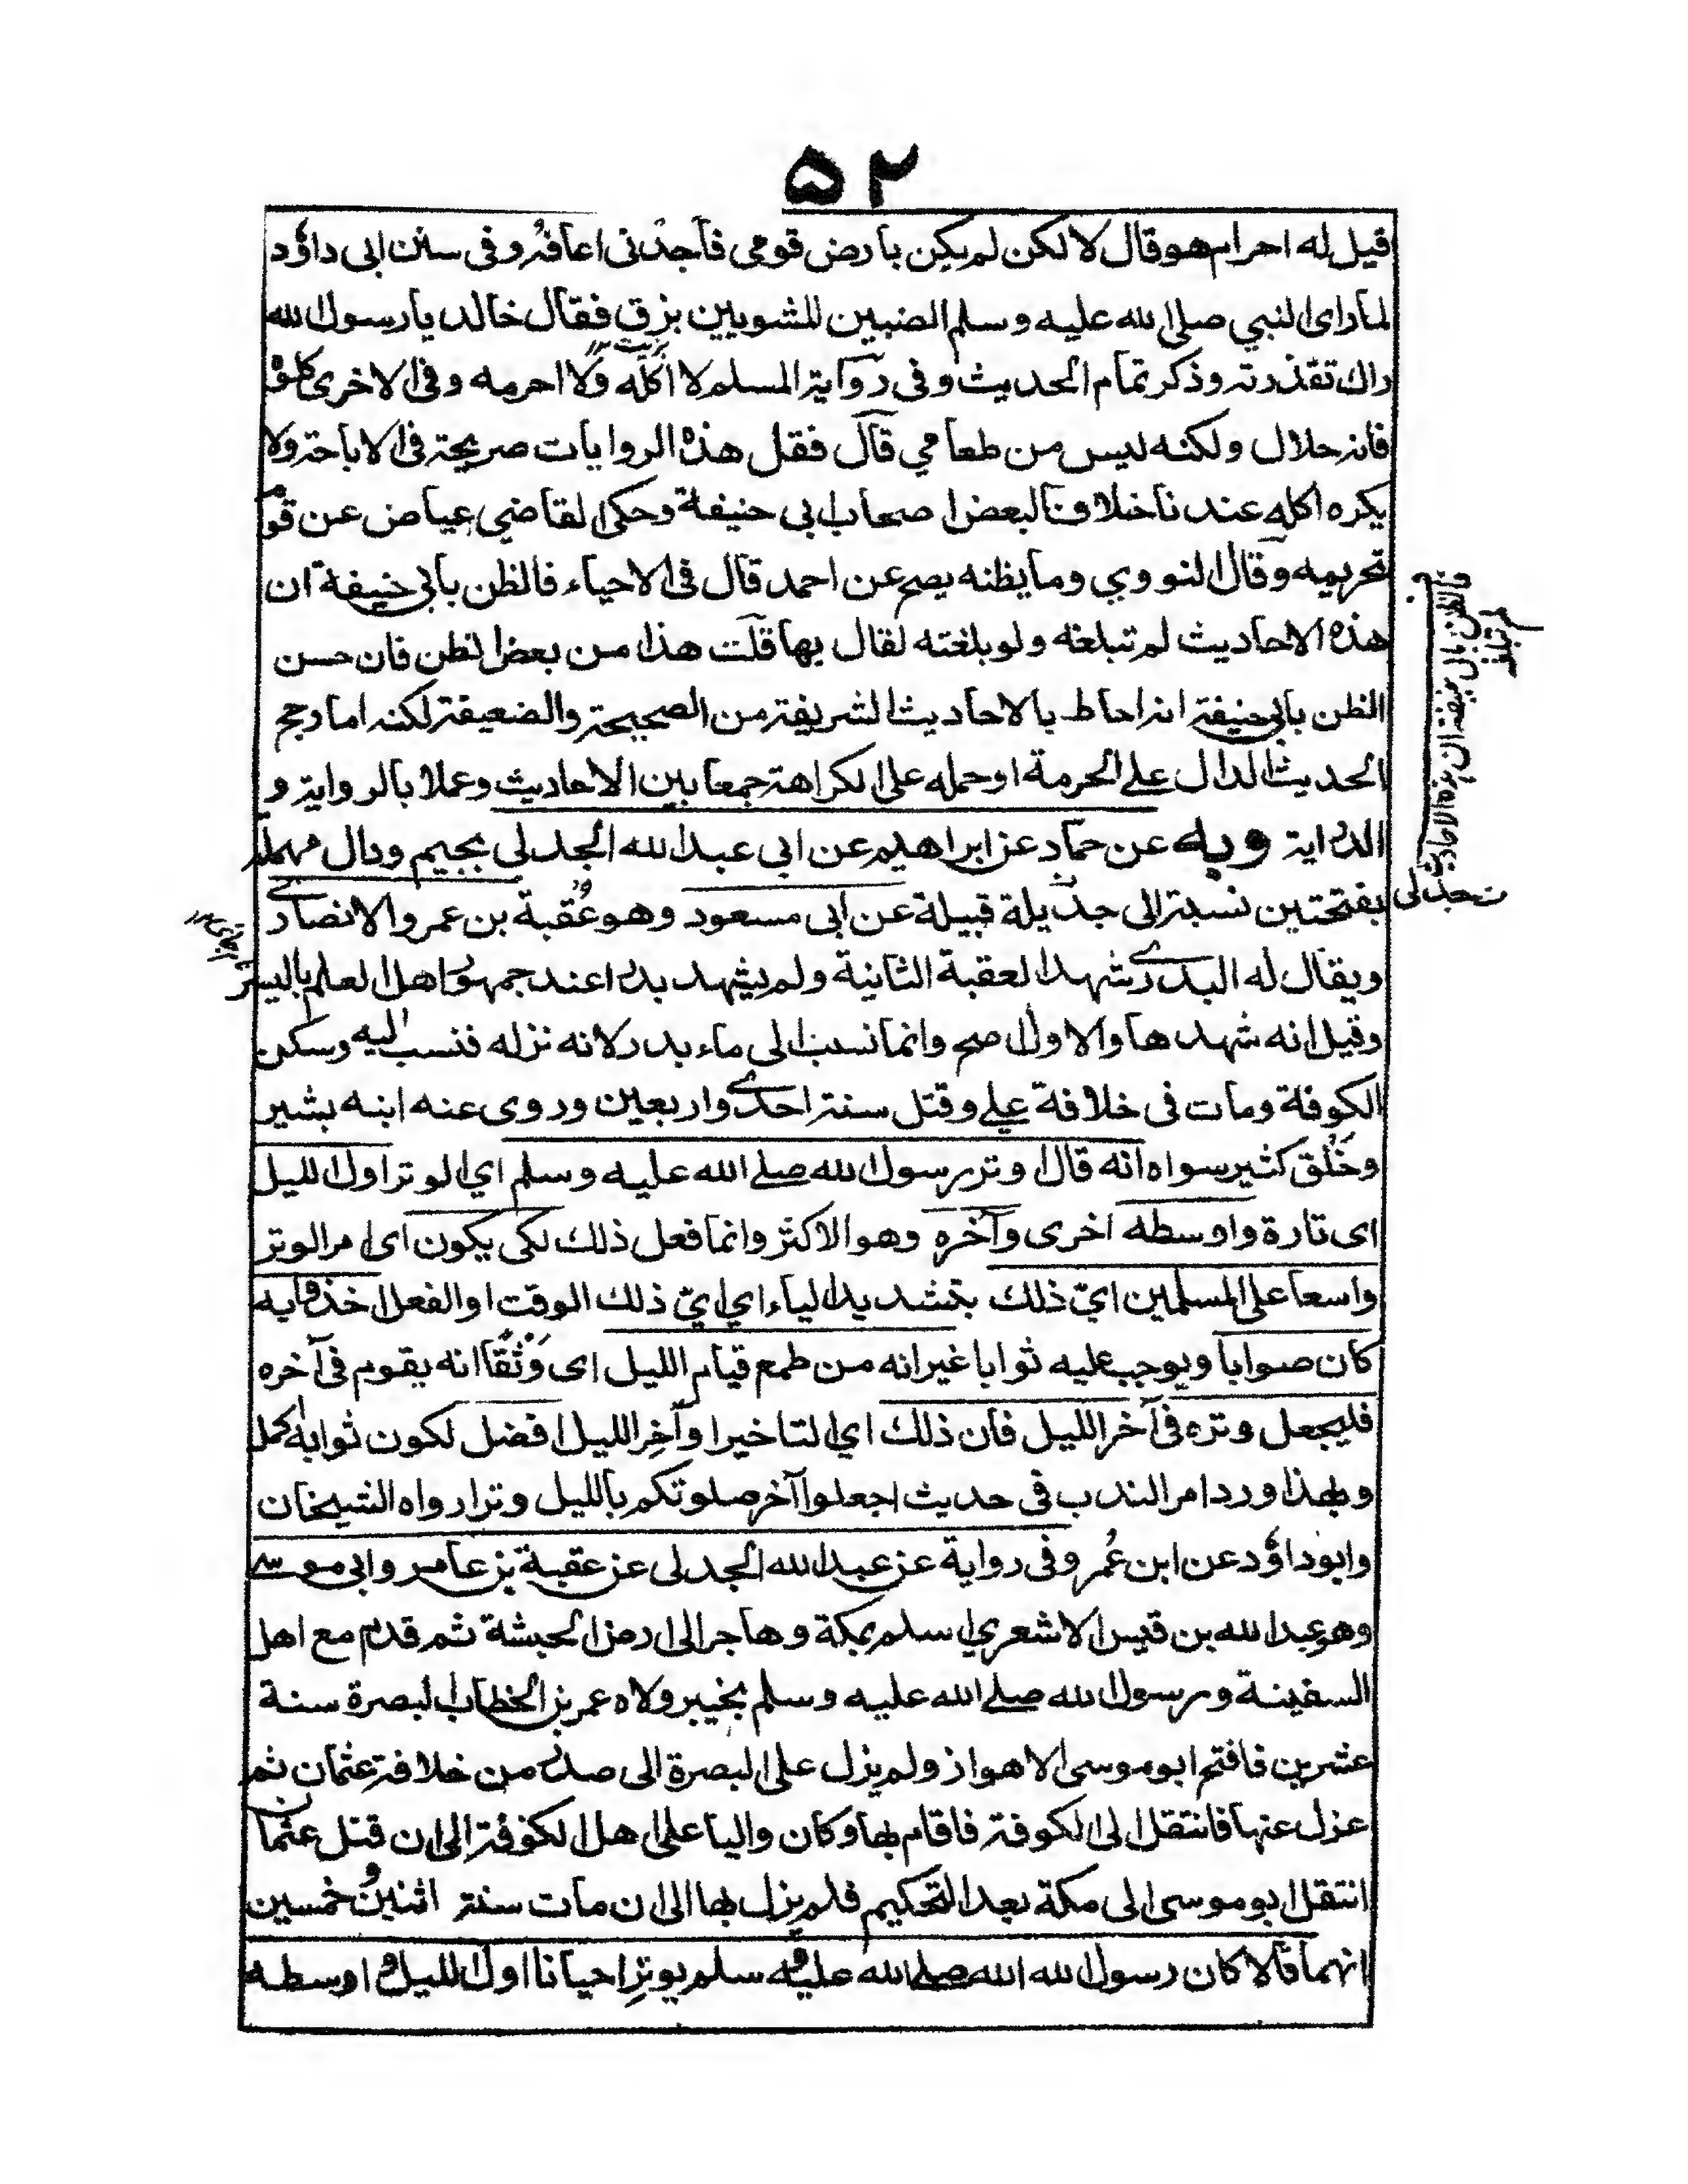 ۵۲
قيل له احرام هو قال لا لكن لم يكن بارض قومى فاجدنى اعافه وفى سنن ابى داؤد
لما راى النبي صلى الله عليه وسلم الضبين المشويين بزق فقال خالد يا رسول الله
راك تقذرته وذكر تمام الحديث وفى رواية المسلم لا آكله ولا احرمه وفى الاخرى كلوا
فانه حلال ولكنه ليس من طعامي قال فقل هذه الروايات صريحة فى الاباحة ولا
يكره اكله عندنا خلافا لبعض اصحاب ابى حنيفة وحكى القاضي عياض عن قوم
تحريمه وقال النووي وما يظنه يصح عن احمد قال فى الاحياء فالظن بابى حنيفة ان
هذه الاحاديث لم تبلغه ولو بلغته لقال بها قلت هذا من بعض الظن فان حسن
الظن بابى حنيفة انه احاط بالاحاديث الشريفة من الصحيحة والضعيفة لكنه اما رجح
الحديث الدال على الحرمة او حمله على الكراهة جمعا بين الاحاديث وعملا بالرواية و
الدراية وبه عن حماد عن ابراهيم عن ابى عبد الله الجدلى بجيم ودال مهملة
بفتحتين نسبة الى جديلة قبيلة عن ابى مسعود وهو عُقبة بن عمرو الانصارى
ت جدلى
ويقال له البدرى شهد العقبة الثانية ولم يشهد بدرا عند جمهور اهل العلم بالسير
وقيل انه شهدها والاول اصح وانما نسب الى ماء بدر لانه نزله فنسب اليه وسكن
الكوفة ومات فى خلافة علي وقتل سنة احدى واربعين وروى عنه ابنه بشير
وخَلق كثير سواه انه قال اوتر رسول الله صلى الله عليه وسلم اي الوتر اول الليل
اى تارة واوسطه اخرى وآخره وهو الاكثر وانما فعل ذلك لكى يكون اى امر الوتر
واسعا على المسلمين ايّ ذلك بتشديد الياء اي ايّ ذلك الوقت او الفعل اخذوا به
كان صوابا ويوجب عليه ثوابا غير انه من طمع قيام الليل اى وَثْقًا انه يقوم فى آخره
فليجعل وتره فى آخر الليل فان ذلك اي التاخير او آخر الليل افضل لكون ثوابه اكمل
وبهذا ورد امر الندب فى حديث اجعلوا آخر صلوتكم بالليل وترا رواه الشيخان
وابوداؤد عن ابن عُمر وفى رواية عن عبد الله الجدلى عن عقبة بن عامر وابى موسى
وهو عبد الله بن قيس الاشعري اسلم بمكة وهاجر الى ارض الحبشة ثم قدم مع اهل
السفينة ورسول الله صلى الله عليه وسلم بخيبر ولاه عمر بن الخطاب البصرة سنة
عشرين فافتح ابو موسى الاهواز ولم يزل على البصرة الى صدر من خلافة عثمان ثم
عزل عنها فانتقل الى الكوفة فاقام بها وكان واليا على اهل الكوفة الى ان قتل عثمان
انتقل ابو موسى الى مكة بعد التحكيم فلم يزل بها الى ان مات سنة اثنين وخمسين
انهما قالا كان رسول الله الله صلى الله عليه وسلم يوتر احيانا اول الليل واوسطه